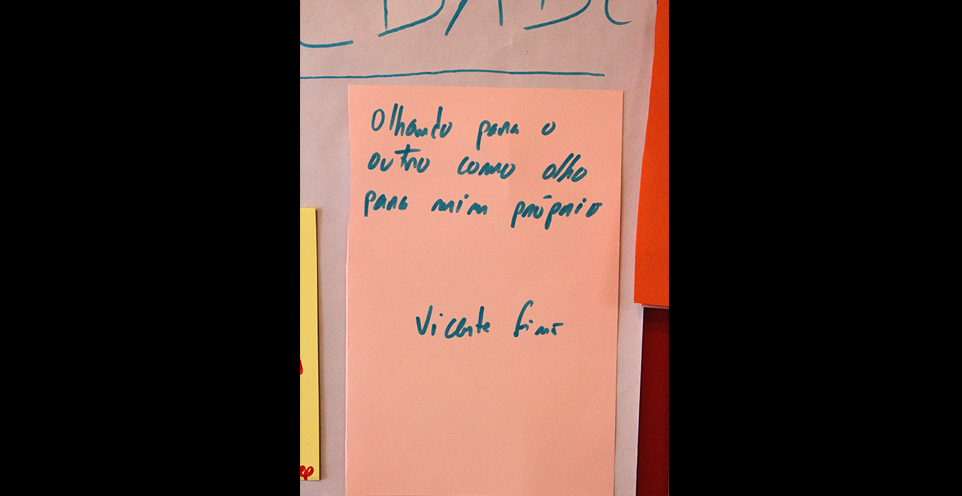 Olhando para o
outro como olho
para mim próprio
Vicente